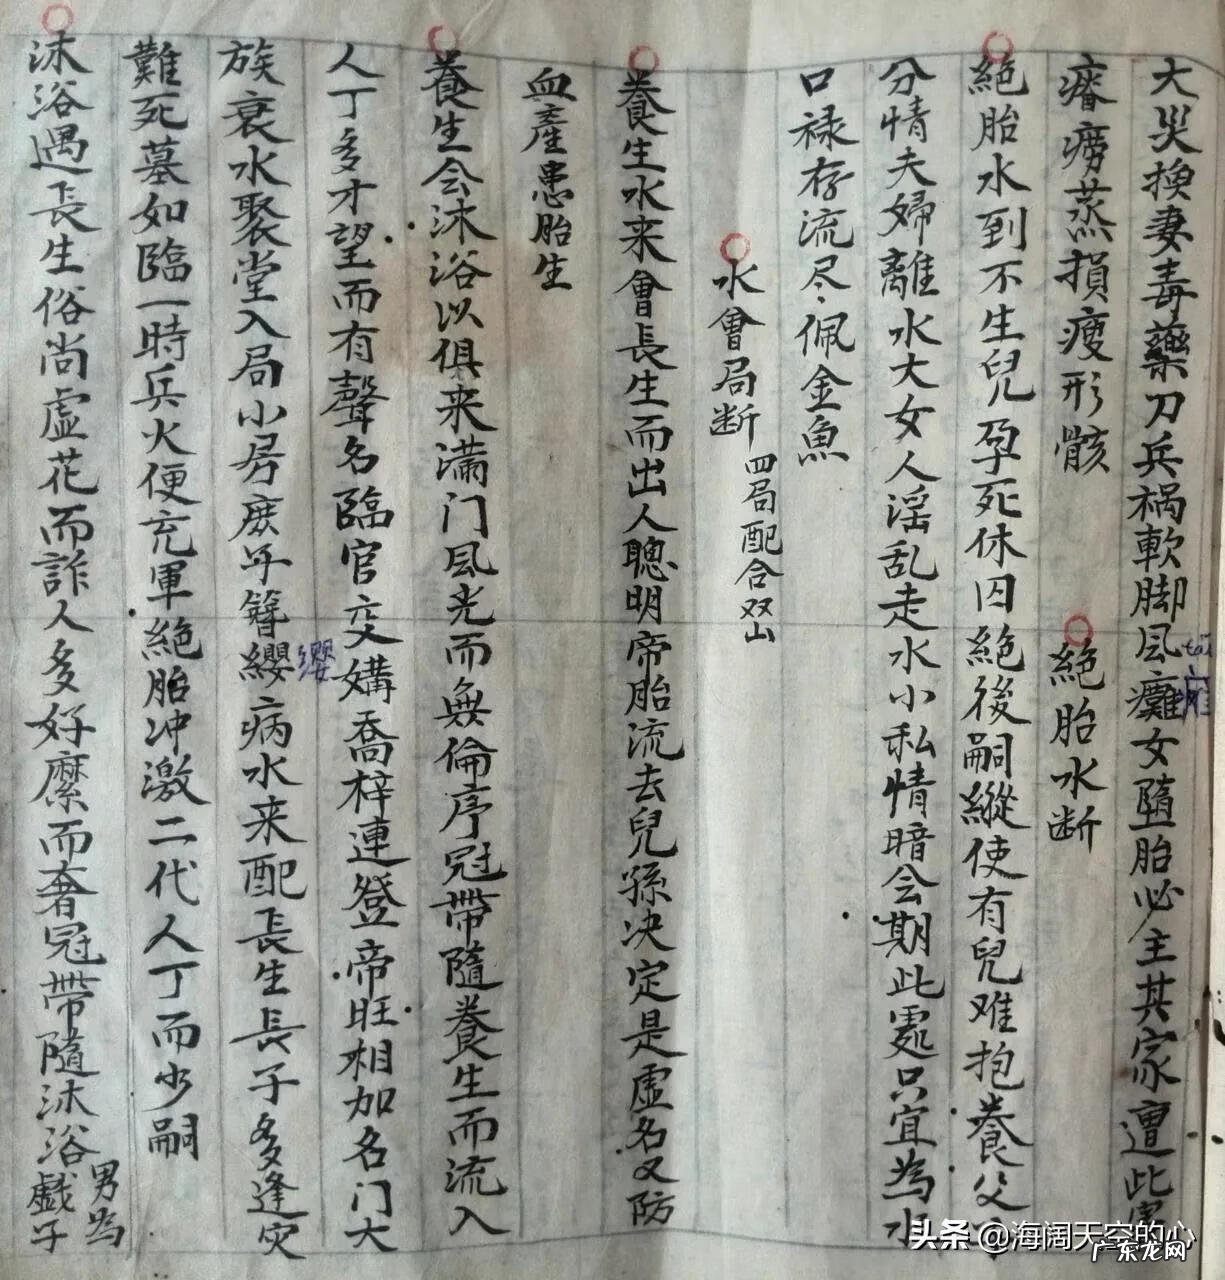 大災換妻毒藥刀兵祸軟脚风癱女墮胎必主其家遭此害
tai
癱
瘵痨蒸損瘦形骸
絕胎水断
絕胎水到不生兒孕死休囚絕後嗣縱使有兒难抱養父
分情夫婦離水大女人淫乱走水小私情暗会期此處只宜為水
口禄存流尽佩金魚
水會局断 四局配合双山
養生水来會長生而出人聰明帝胎流去兒孫决定是虚名又防
血産患胎生
養生会沐浴以俱来满门风光而無倫序冠帶隨養生而流入
人丁多才望而有聲名臨官交媾喬梓連登帝旺相加名门大
族衰水聚堂入局小房庶年簪纓病水来配長生長子多逢灾
缨
難死墓如臨一時兵火便充軍絕胎冲激二代人丁而少嗣
沐浴遇長生俗尚虚花而詐人多好縻而奢冠帶隨沐浴男為戲子
头条 @海阔天空的心
广东龙网